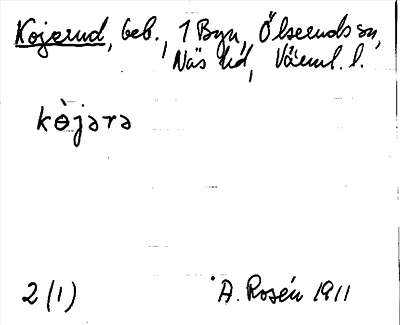 Kojerud, beb., 1 Byn, Ölseruds sn,
Näs hd, Värml. l.
kɵ̀jərə
2 (1) A. Rosén 1911